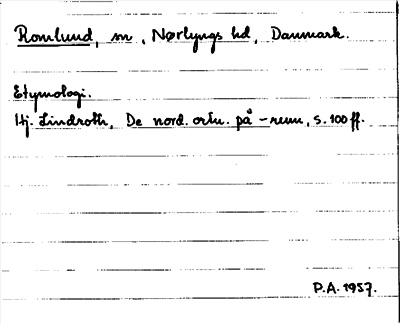 Romlund, sn, Nørlyngs hd, Danmark.
Etymologi.
Hj. Lindroth, De nord. ortn. på -rum, s. 100 ff.
P.A. 1957.